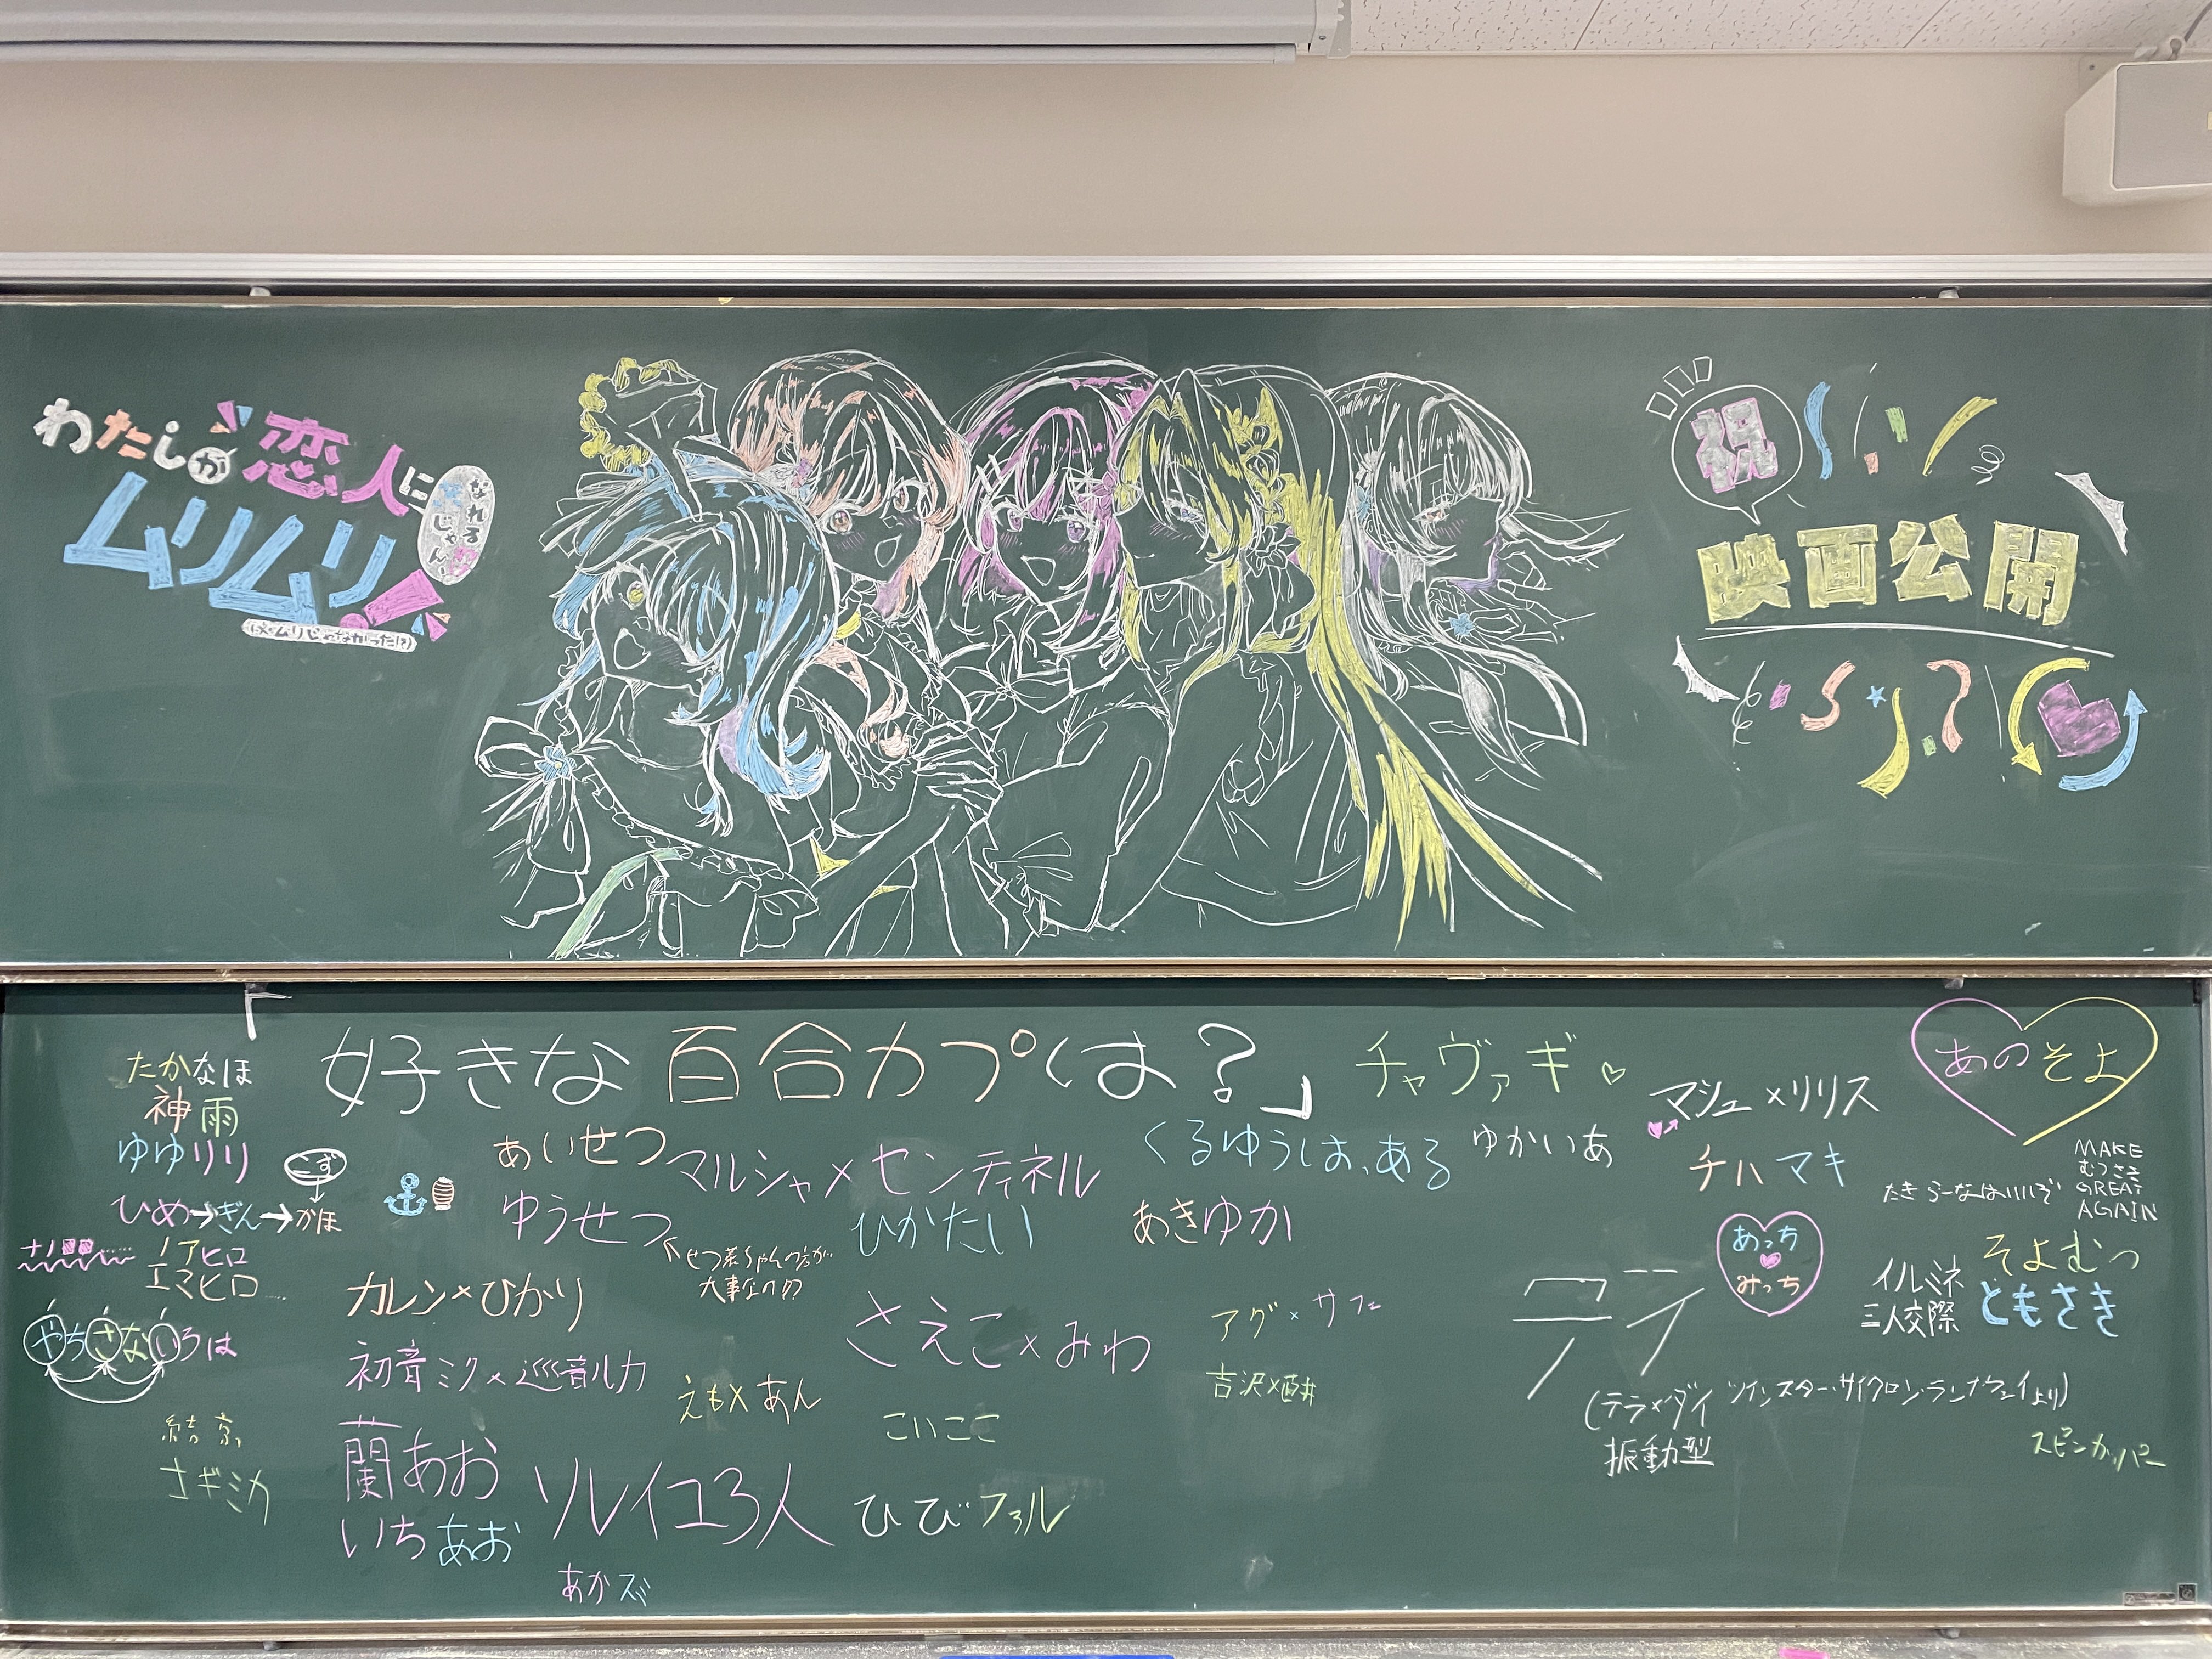 わたしが恋人に
なれるわけ
じゃん、
ムリムリ!
(※ムリじゃなかった!?)
祝
映画公開
「好きな百合カプは?」
チャヴァギ♡
あのそよ
たかなほ
神雨
ゆゆリリ
こず
ひめ→ぎん→かほ
ノアヒロ
エマヒロ
やちさないろは
結京
サギミカ
あいせつ
ゆうせつ
せつ菜ちゃんの方が
大事なの??
マルシャ×センティネル
ひかたい
カレン×ひかり
初音ミク×巡音ルカ
えも×あん
蘭あお
いちあお
ソレイユ3人
あかズバ
さえこ×みわ
こいここ
ひびファル
くるゆうは、ある
ゆかいあ
あきゆか
アグ×サフェ
マシュ×リリス
チハマキ
MAKE
むつさき
GREAT
AGAIN
あっち
みっち
イルミネ
三人交際
そよむつ
ともさき
(テラ×ダイ ツインスター・サイクロン・ランナウェイより)
振動型